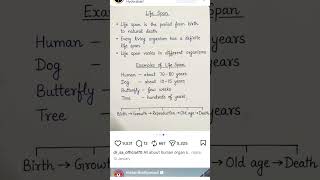 Hyderabad
Life Span
• Life span is the period from birth
to natural death
• Every living organism has a definite
life span
• Life span varies in different organisms
Examples of Life Span
Human - about 70-80 years
Dog - about 10-15 years
Butterfly - few weeks
Tree - hundreds of years.
Birth → Growth → Reproduction → Old age → Death
Exam
Human –
Dog –
Butterfly –
Tree –
Birth → Growt
Span
years
years
years
Old age → Death
All about human organ s... more